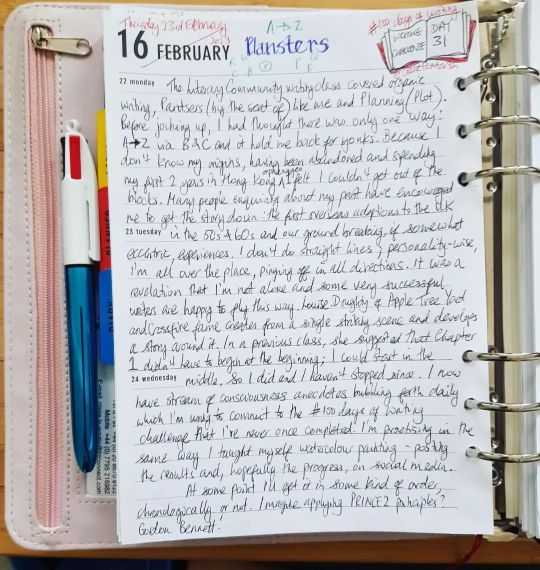 Thursday 23rd February
2023
A→Z
#100 days of writing
WRITING CHALLENGE
DAY 31
16 FEBRUARY Plansters
22 monday The Literary Community writing class covered organic
writing, Pantsers (by the seat of) like me and Planning (Plot).
Before joining up, I had thought there was only one way:
A→Z via B&C and it held me back for yonks. Because I
don't know my origins, having been abandoned and spending
my first 2 years in Hong Kong orphanages I felt I couldn't get out of the
blocks. Many people enquiring about my past have encouraged
me to get the story down: the first overseas adoptions to the UK
23 tuesday in the 50s & 60s and our ground breaking, if somewhat
eccentric, experiences. I don't do straight lines; personality-wise,
I'm all over the place, pinging off in all directions. It was a
revelation that I'm not alone and some very successful
writers are happy to play this way. Louise Doughty of Apple Tree Yard
and Crossfire fame creates from a single striking scene and develops
a story around it. In a previous class, she suggested that Chapter
1 didn't have to begin at the beginning; I could start in the
24 wednesday middle, so I did and I haven't stopped since. I now
have stream of consciousness anecdotes bubbling forth daily
which I'm using to commit to the #100 days of writing
challenge that I've never once completed. I'm practising in the
same way I taught myself watercolour painting - posting
the results and, hopefully the progress, on social media.
At some point I'll get it in some kind of order,
chronologically or not. Imagine applying PRINCE2 principles?
Gordon Bennett!